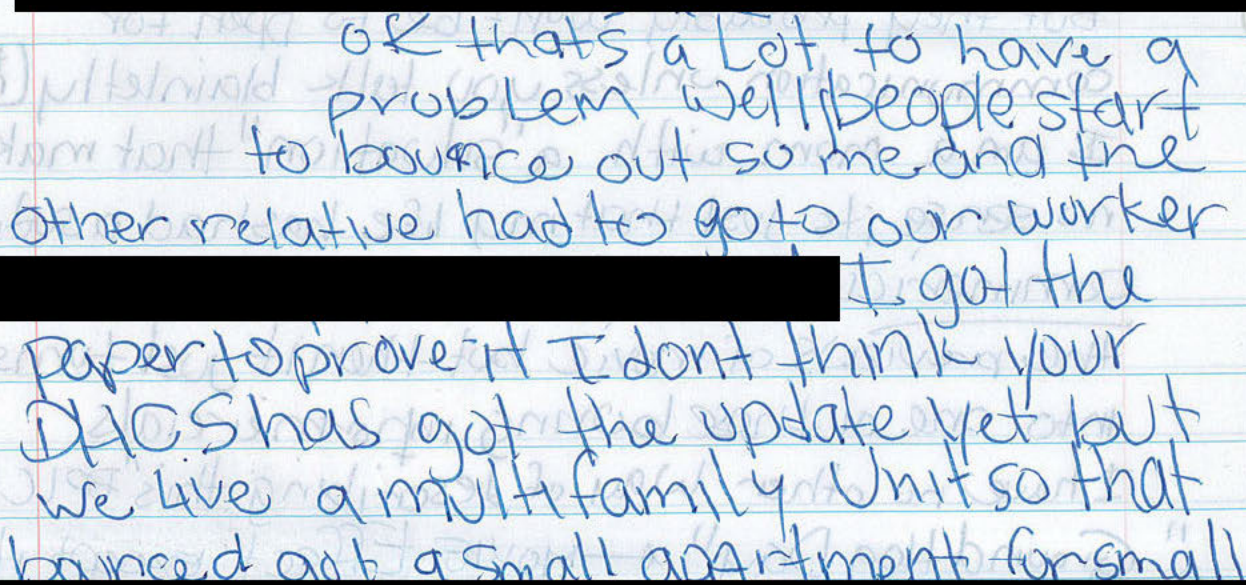 OK thats a Lot to have a
problem well people start
to bounce out so me and the
other relative had to go to our worker
I got the
paper to prove it I dont think your
DHCS has got the update yet but
we live a multifamily Unit so that
bounced out a small apartment for small